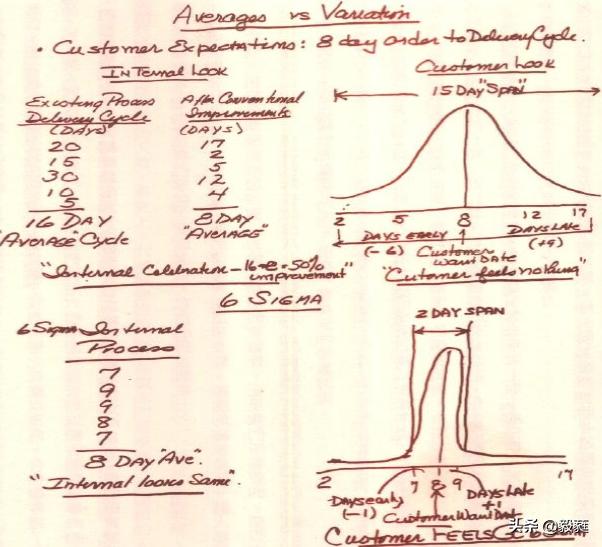 Averages vs Variation
• Customer Expectations: 8 day order to Delivery Cycle.
Internal Look
Existing Process
Delivery Cycle
(DAYS)
20
15
30
10
5
16 DAY
"Average" Cycle
After Conventional
Improvements
(DAYS)
17
2
5
12
4
8 DAY
"AVERAGE"
"Internal Celebration - 16→8 = 50%
improvement"
Customer Look
15 DAY "Span"
2 5 8 12 17
DAYS EARLY DAYS Late
(-6) Customer (+9)
Want Date
"Cutomer feels nothing"
6 SIGMA
6 Sigma Internal
Process
7
9
9
8
7
8 DAY "Ave".
"Internal looks Same".
2 DAY SPAN
2 7 8 9 17
Days early Days Late
(-1) +1
Customer Want Date
Customer FEELS
头条 @毅冠